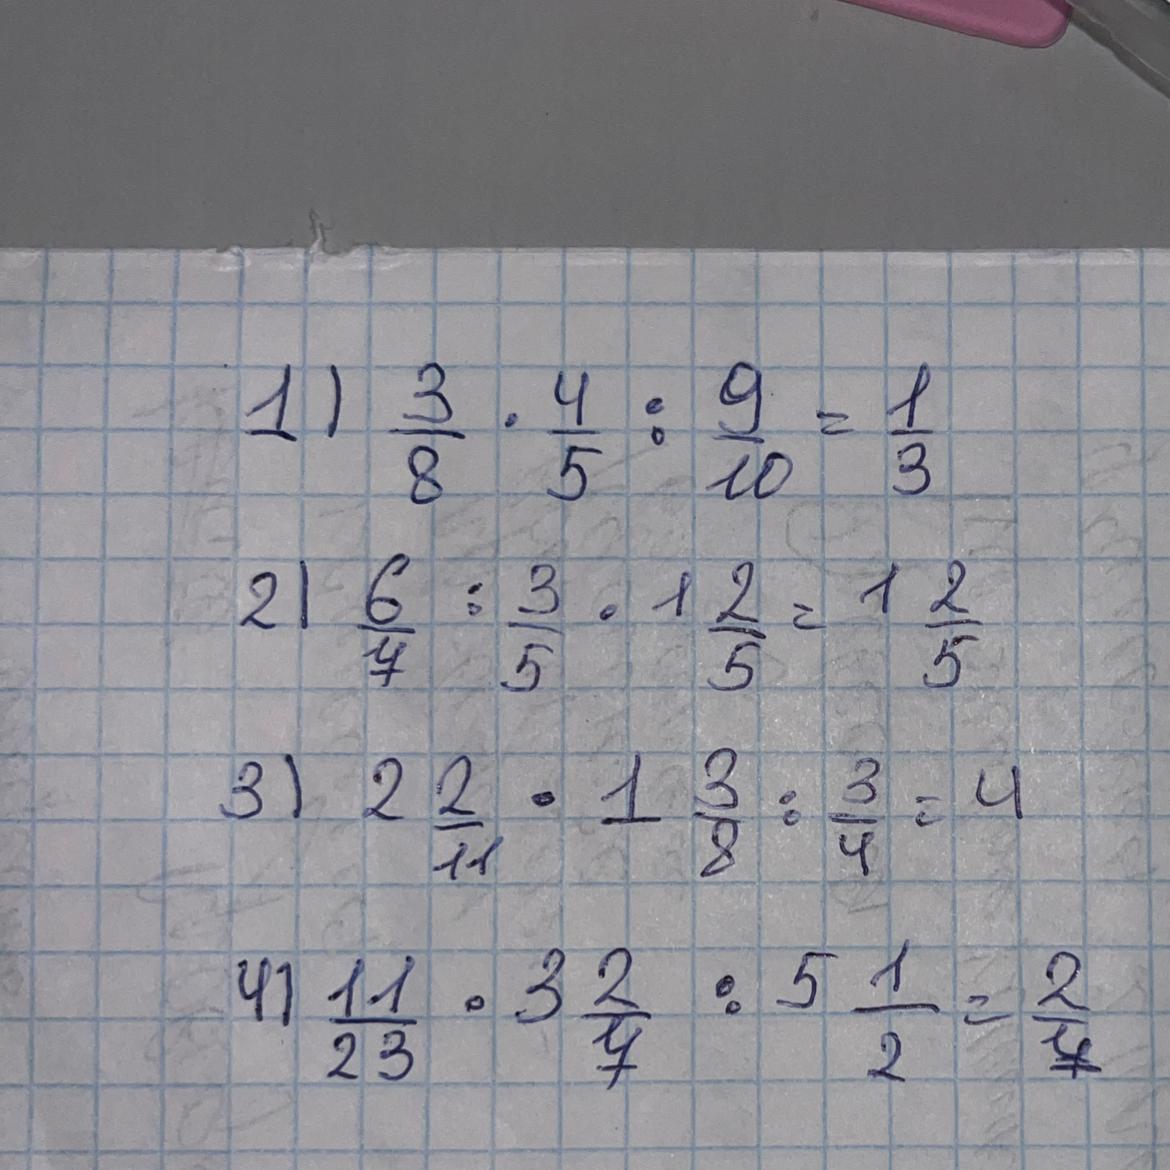 1) 3/8 · 4/5 : 9/10 = 1/3
2) 6/7 : 3/5 · 1 2/5 = 1 2/5
3) 2 2/11 · 1 3/8 : 3/4 = 4
4) 11/23 · 3 2/7 : 5 1/2 = 2/7